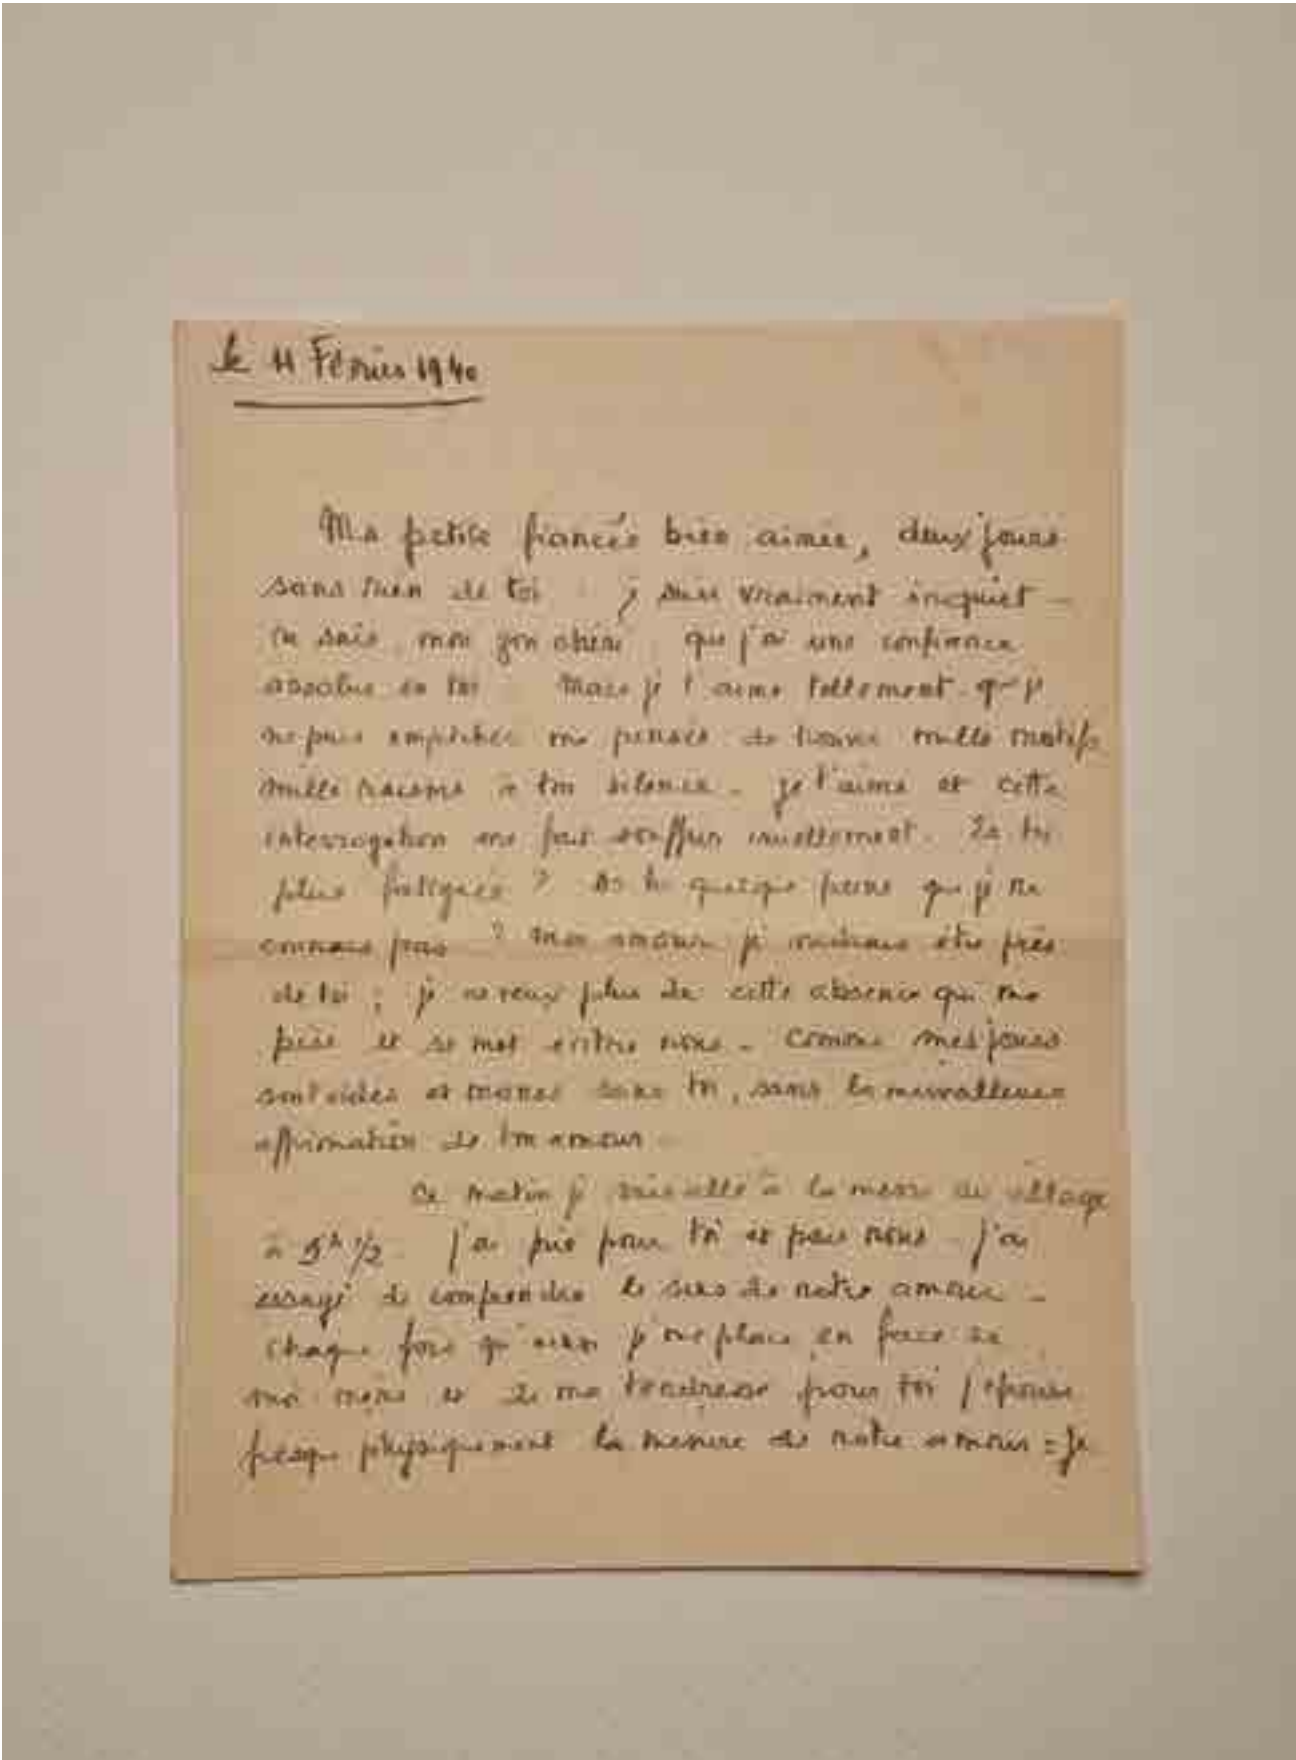 le 11 Février 1940
Ma petite fiancée bien aimée, deux jours
sans rien de toi : je suis vraiment inquiet -
tu sais, mon chéri, que j'ai une confiance
absolue en toi. Mais je t'aime tellement que je
ne puis empêcher ma pensée de trouver mille motifs
mille raisons à ton silence. je t'aime et cette
interrogation me fait souffrir cruellement. Es tu
plus fatiguée ? As tu quelque peine que je ne
connais pas ? Mon amour je voudrais être près
de toi ; je ne veux plus de cette absence qui me
pèse et se met entre nous. Comme mes jours
sont vides et mornes sans toi, sans la merveilleuse
affirmation de ton amour.
Ce matin je suis allé à la messe du village
à 5h 1/2. J'ai prié pour toi et pour nous. J'ai
essayé de comprendre le sens de notre amour -
chaque fois je me place en face de
et de ma tendresse pour toi j'éprouve
presque physiquement la mesure de notre amour : Je